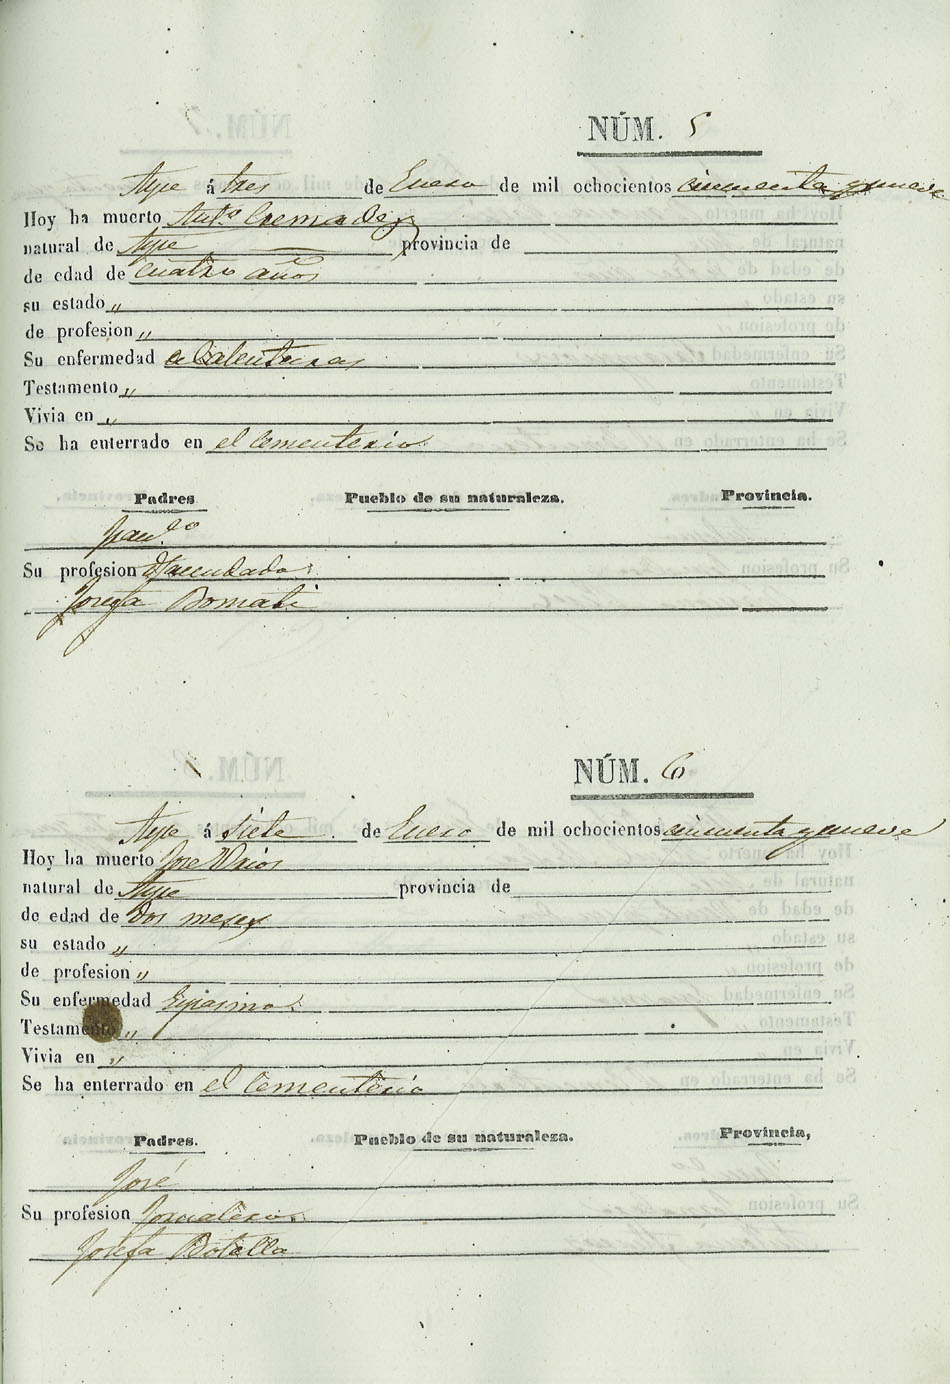 NÚM. 5
Aspe á tres de Enero de mil ochocientos cincuenta y nueve
Hoy ha muerto Ant.o Cremades
natural de Aspe provincia de
de edad de cuatro años
su estado „
de profesion „
Su enfermedad Calenturas
Testamento „
Vivia en „
Se ha enterrado en el Cementerio
Padres Pueblo de su naturaleza. Provincia.
Fran.co
Su profesion Hacendado
Josefa Bomati
NÚM. 6
Aspe á siete de Enero de mil ochocientos cincuenta y nueve
Hoy ha muerto José
natural de Aspe provincia de
de edad de dos meses
su estado „
de profesion „
Su enfermedad Espasmo
Testamento „
Vivia en „
Se ha enterrado en el Cementerio
Padres. Pueblo de su naturaleza. Provincia,
José
Su profesion Jornalero
Josefa Botella